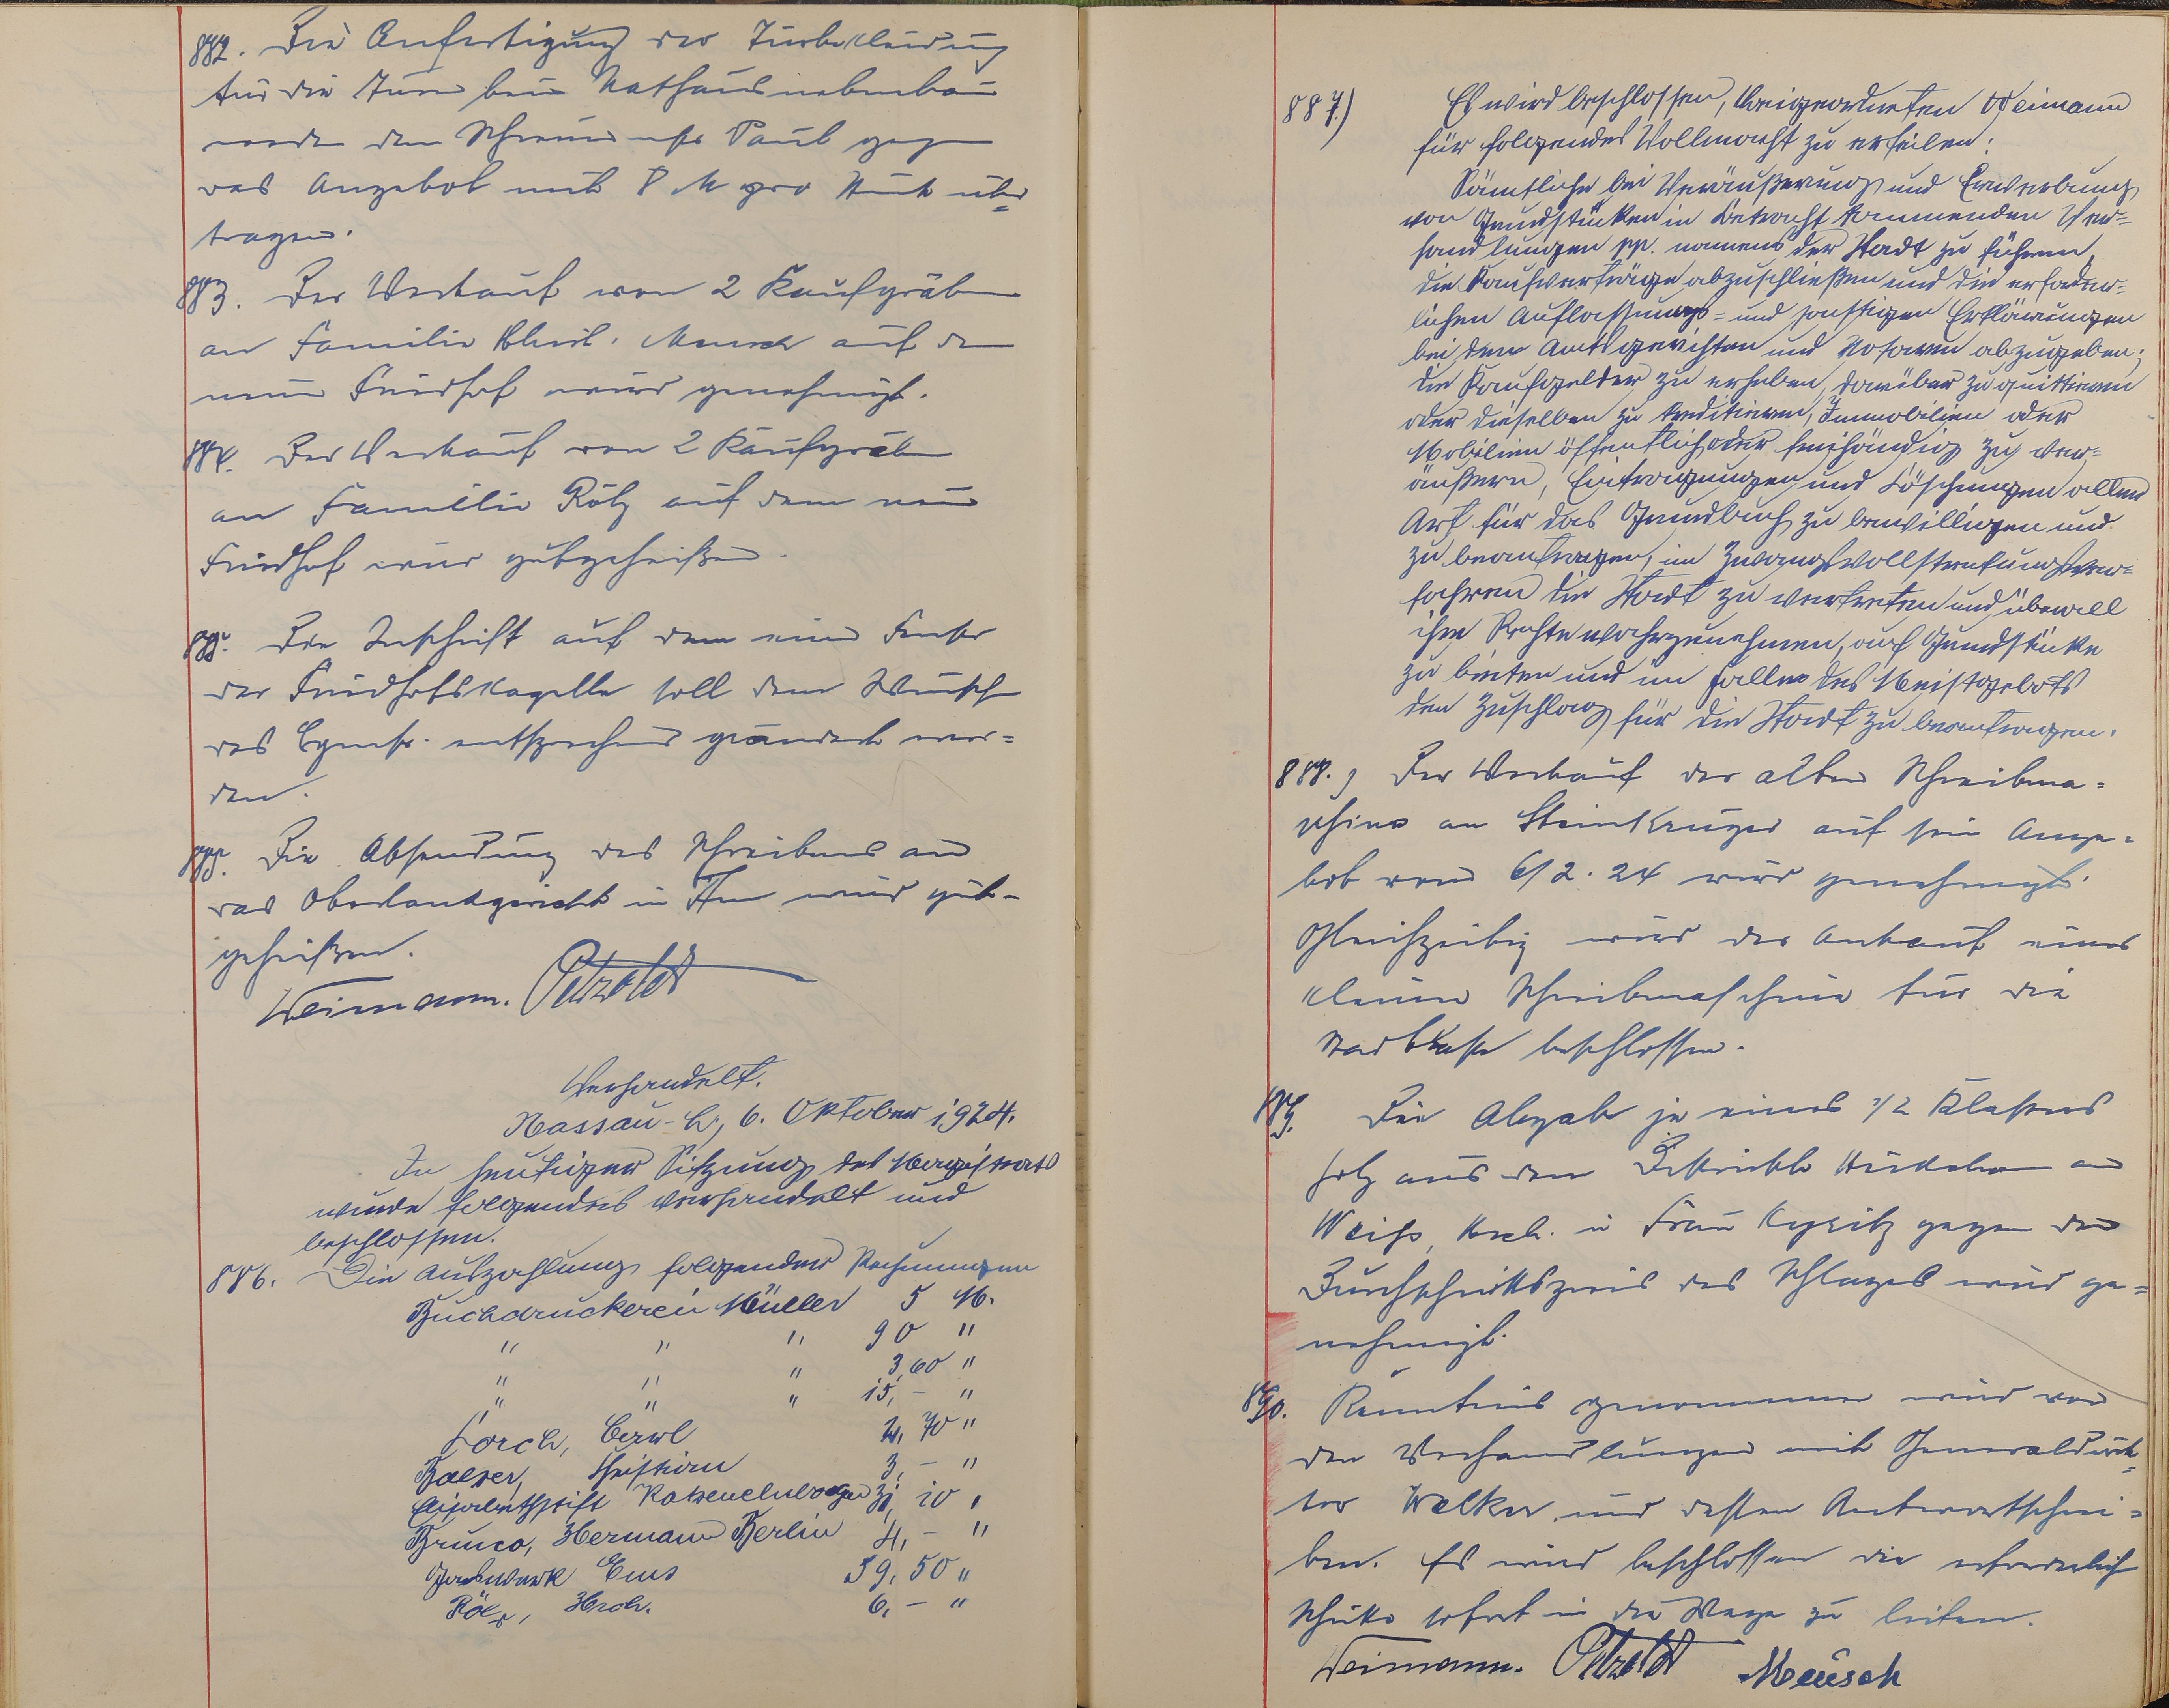 882. Die Anfertigung der Türbekleidung
für die Türen beim Rathausnebenbau
werde dem Schreinermstr Paul gegen
das Angebot mit 8 M pro Stück über=
tragen.
883. Der Verkauf von 2 Kaufgräbern
an Familie Chrict. Meusch auf dem
neuen Friedhof wird genehmigt.
884. Der Verkauf von 2 Kaufgräbern
an Familie Rölz auf dem neuen
Friedhof wird gutgeheißen.
Die Inschrift auf dem einen Fenster
der Friedhofskapelle soll dem Wunsch
des entsprechend geändert wer=
den.
885. Die Absendung des Schreibens an
das Oberlandgericht in Ffm wird gut-
geheißen.
Weimann. Petzoldt
Verhandelt.
Nassau-L, 6. Oktober 1924.
In heutiger Sitzung des Magistrats
wurde folgendes verhandelt und
beschlossen.
886. Die Auszahlung folgender Rechnungen
Buchdruckerei Müller 5 M.
" " " 90 "
" " " 3,60 "
" " " 15,- "
Lorch, Carl 70 "
Balzer, Christian 3,- "
Elisabethstift Katzenelnbogen 10 "
Hermann Berlin 4,- "
Gaswerk Ems 59,50 "
Hrch. 6,- "
887.) Es wird beschlossen, Beigeordneten Weimann
für folgendes Vollmacht zu erteilen:
Sämtliche bei Veräußerung und Erwerbung
von Grundstücken in Betracht kommenden Ver=
handlungen pp. namens der Stadt zu führen,
die Kaufverträge abzuschließen und die erforder=
lichen Auflassungs= und sonstigen Erklärungen
bei den Amtsgerichten und Notaren abzugeben;
die Kaufgelder zu erheben, darüber zu quittieren
oder dieselben zu kreditieren, Immobilien oder
Mobilien öffentlich oder freihändig zu ver=
äußern, Eintragungen und Löschungen aller
Art für das Grundbuch zu bewilligen und
zu beantragen, im Zwangsvollstreckungsver=
fahren die Stadt zu vertreten und überall
ihre Rechte wahrzunehmen, auf Grundstücke
zu bieten und im Falle des Meistgebots
den Zuschlag für die Stadt zu beantragen.
888.) Der Verkauf der alten Schreibma=
schine an Steinkrüger auf sein Ange=
bot vom 6/2.24 wird genehmigt.
Gleichzeitig wird der Ankauf einer
kleinen Schreibmaschine für die
Stadtkasse beschlossen.
889. Die Abgabe je eines 1/2 Klafters
Holz aus dem Distrikte an
Weiss, Hrch. u Frau Kyritz gegen den
Durchschnittspreis des Schlages wird ge=
nehmigt.
890. Kenntnis genommen wird von
den Verhandlungen mit Generaldirek=
tor Welker und dessen Antwortschrei=
ben. Es wird beschlossen die erforderlich
Schritte sofort in die Wege zu leiten.
Weimann. Petzoldt Meusch